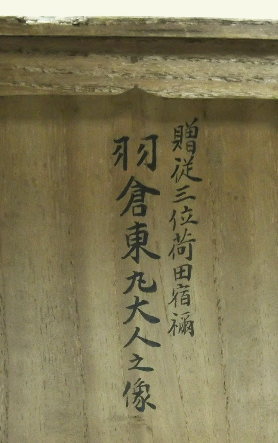 贈従三位荷田宿禰
羽倉東丸大人之像